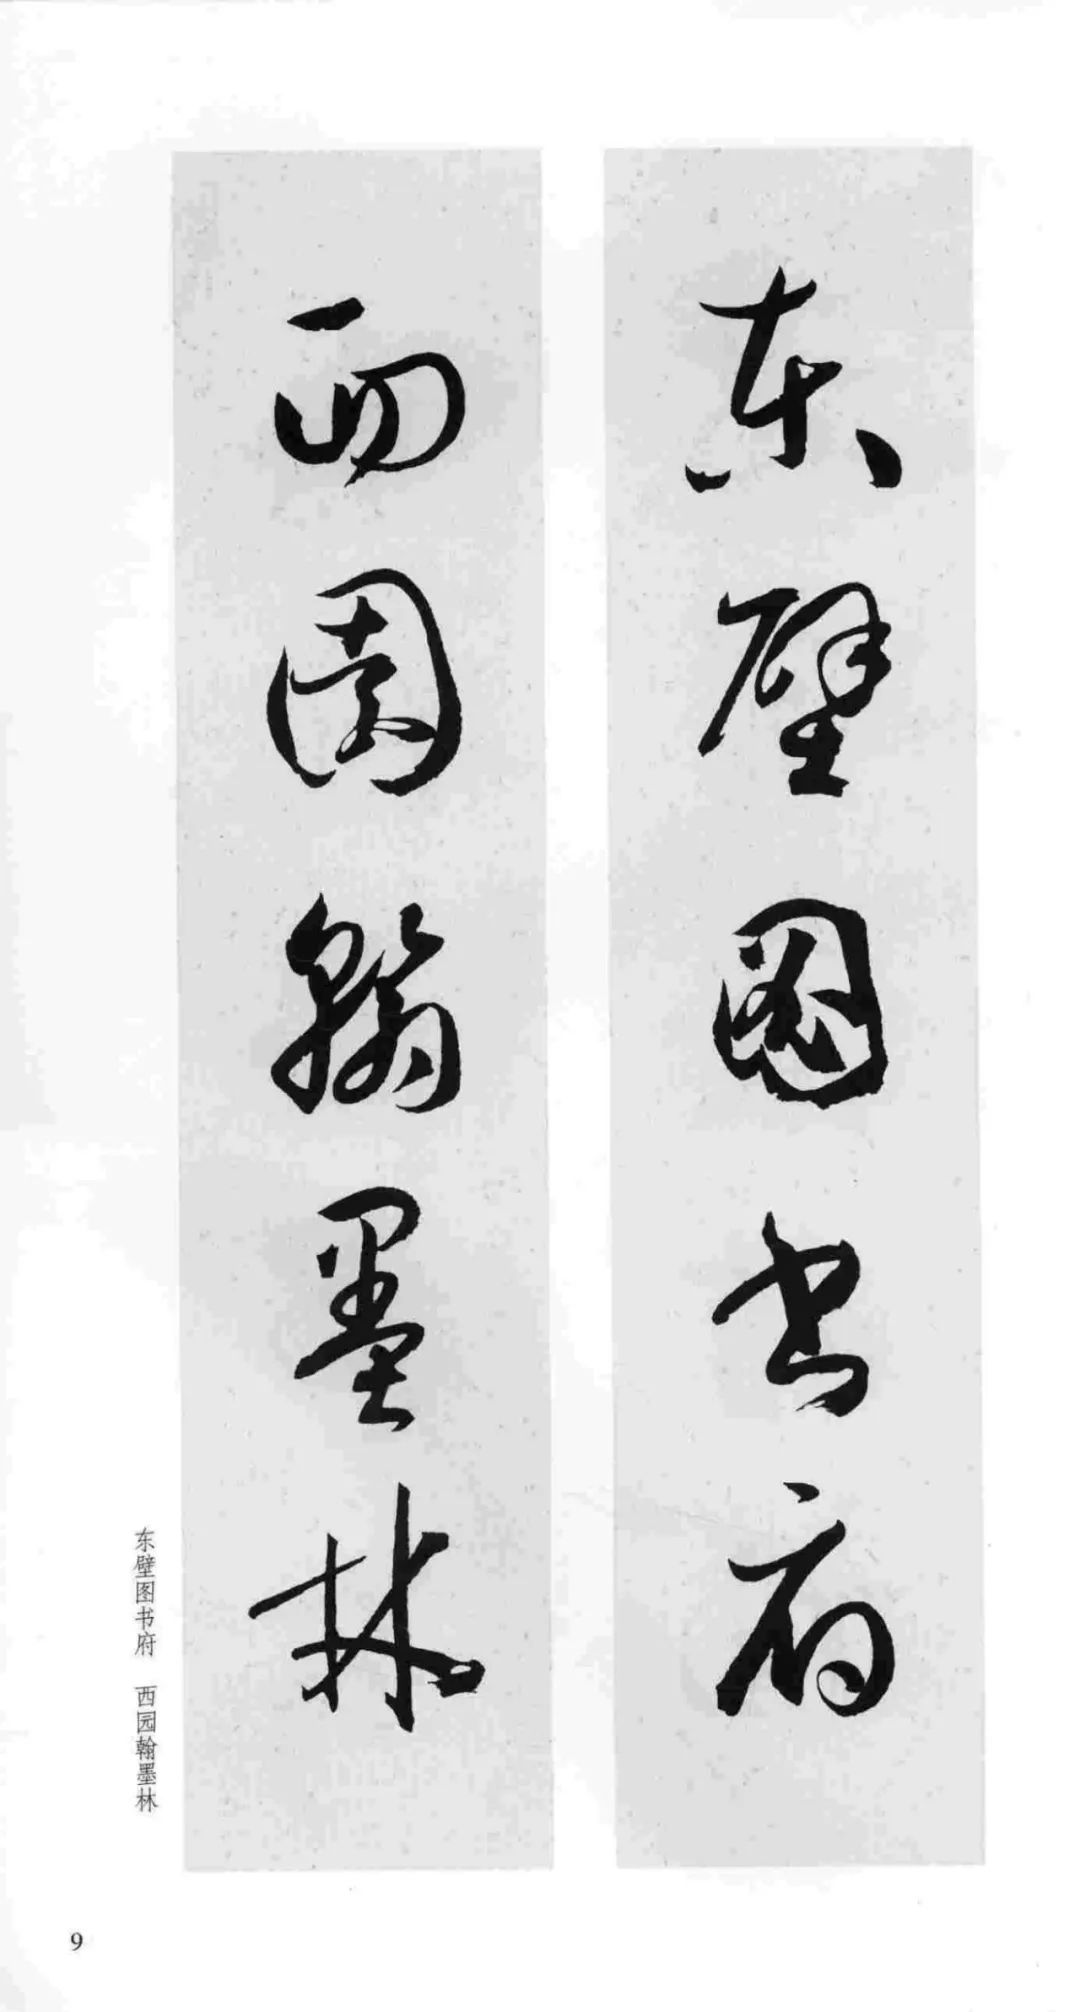 东壁图书府
西园翰墨林
东壁图书府 西园翰墨林
9